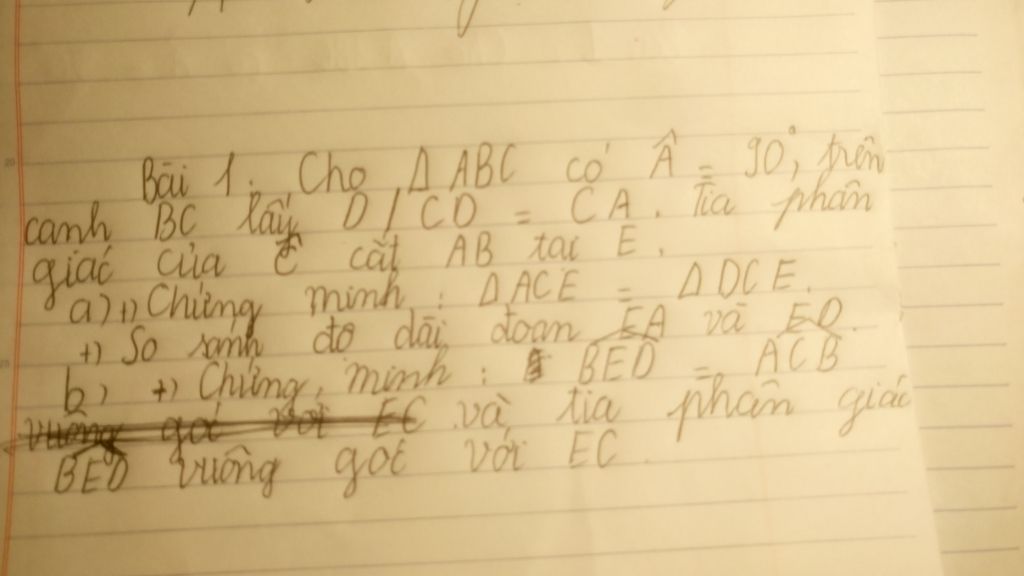 Bài 1. Cho ΔABC có Â = 90°, trên
cạnh BC lấy D / CD = CA. Tia phân
giác của Ĉ cắt AB tại E.
a) +) Chứng minh : ΔACE = ΔDCE.
+) So sánh độ dài đoạn EA và ED.
b) +) Chứng minh : BED = ACB
vuông góc với EC và tia phân giác
BED vuông góc với EC.